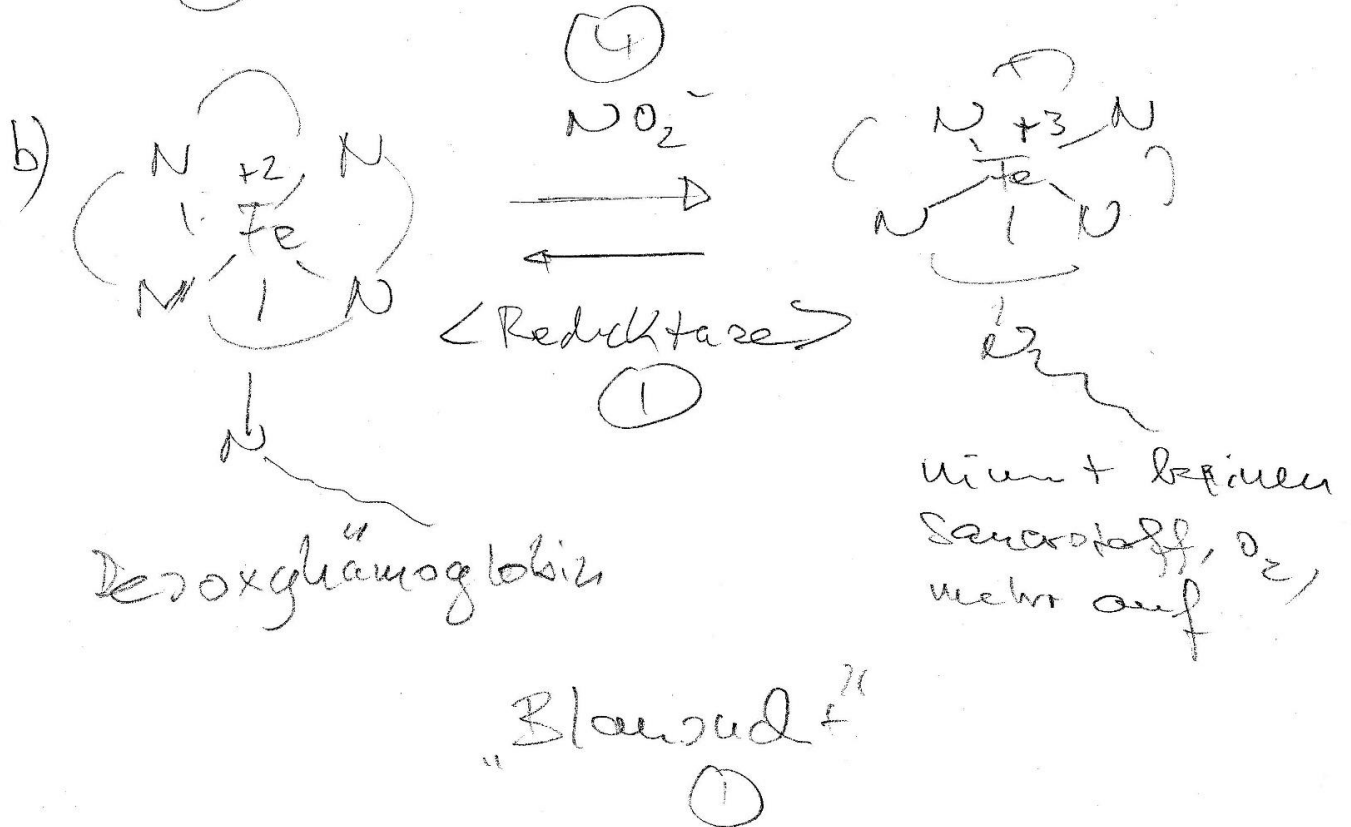 4
NO₂⁻
b)
N +2 N
Fe
N N
N
Desoxyhämoglobin
<Reduktase>
1
N +3 N
Fe
N N
N
nimmt keinen
Sauerstoff, O₂,
mehr auf
„Blausucht“
1